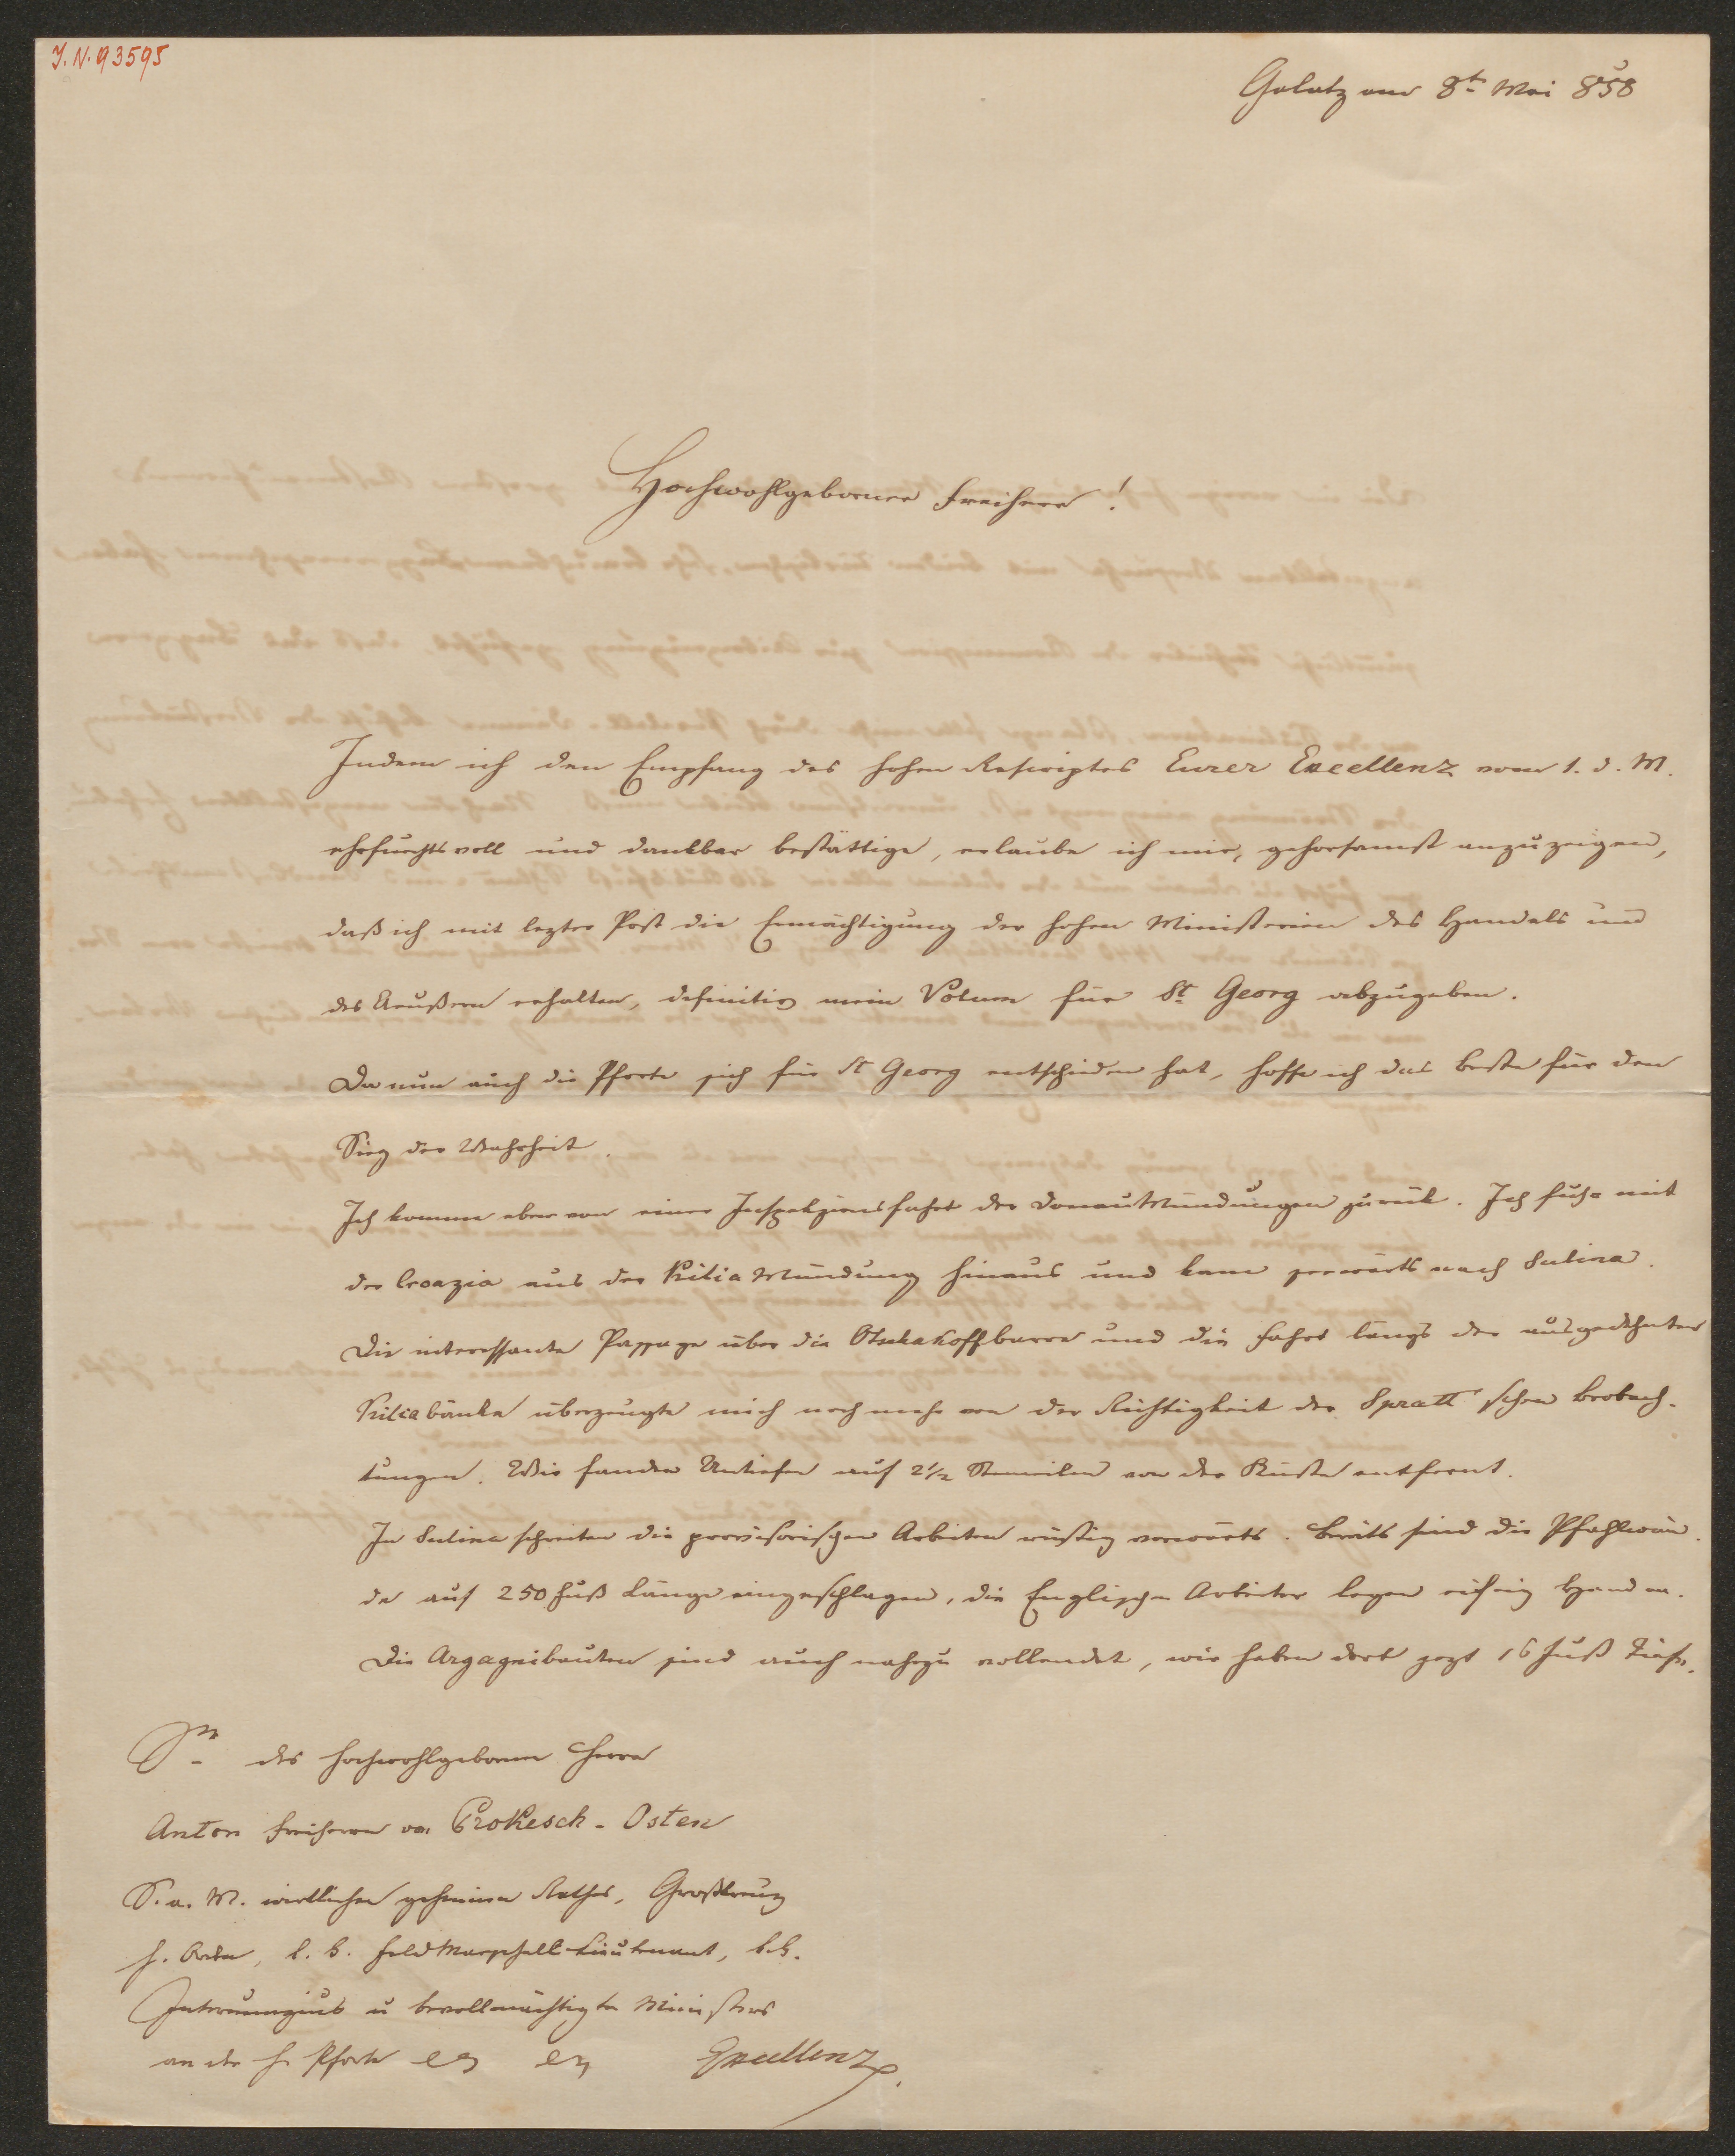 J. N. 93595
Galatz am 8t Mai 858
Hochwohlgeborner Freiherr!
Indem ich den Empfang des hohen Rescriptes Eurer Excellenz vom 1. d. M.
ehrfurchtsvoll und dankbar bestättige, erlaube ich mir, gehorsamst anzuzeigen,
daß ich mit lezter Post die Ermächtigung der hohen Ministerien des Handels und
des Aeußern erhalten, definitiv mein Votum für St Georg abzugeben.
Da nun auch die Pforte sich für St Georg entschieden hat, hoffe ich das beste für den
Sieg der Wahrheit.
Ich komme eben von einer Inspekzionsfahrt der Donaumündungen zurük. Ich fuhr mit
der Croazia aus der Kilia Mündung hinaus und kam seewärts nach Sulina.
Die interessante Passage über die Otschakoffbarre und die Fahrt längs der ausgedehnten
Kiliabänke überzeugte mich noch mehr von der Richtigkeit der Spratt'schen Beobach-
tungen. Wir fanden Untiefen auf 2½ Seemeilen von der Küste entfernt.
In Sulina schreiten die provisorischen Arbeiten rüstig vorwärts. Bereits sind die Pfahlwän-
de auf 250 Fuß Länge eingeschlagen, die Englischen Arbeiter legen eifrig Hand an.
Die Argagnibauten sind auch nahezu vollendet, wir haben dort jezt 16 Fuß Tiefe.
Sr des hochwohlgebornen Herrn
Anton Freiherrn von Prokesch-Osten
S. a. M. wirklichen geheimen Rathes, Großkreuz
h. Orden, k. k. FeldMarschall-Lieutenant, k. k.
Internunzius u bevollmächtigter Ministers
an der h. Pforte etz etz Excellenz.